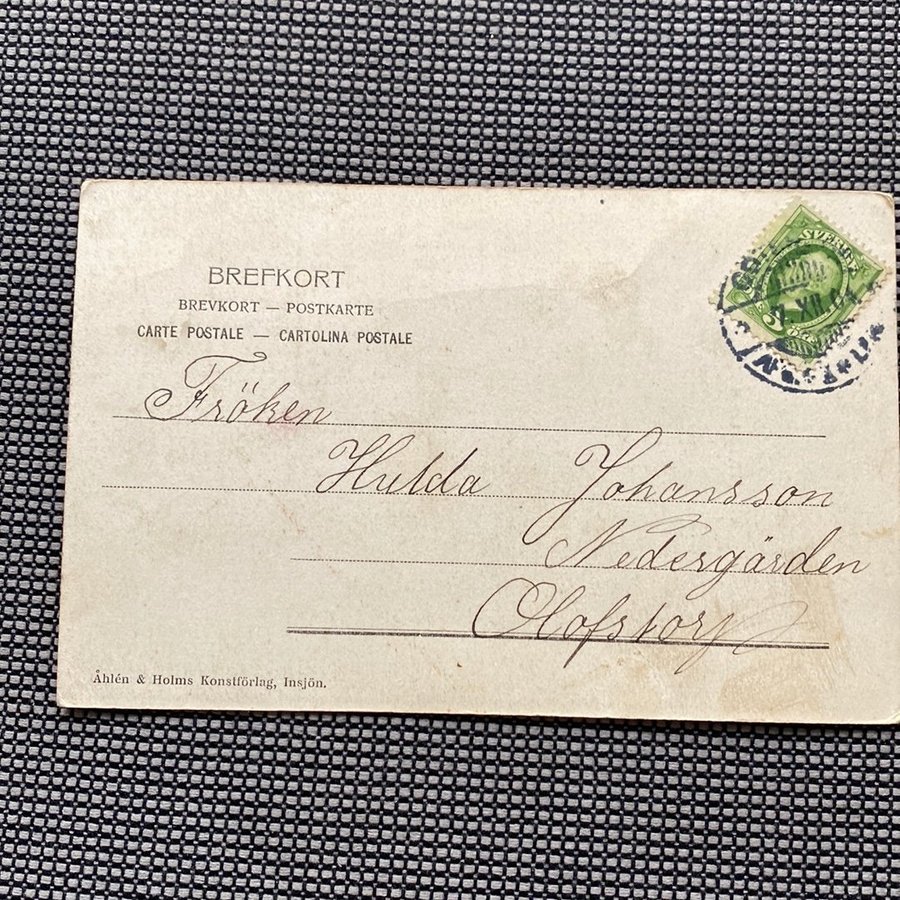 BREFKORT
BREVKORT — POSTKARTE
CARTE POSTALE — CARTOLINA POSTALE
SVERIGE
Fröken
Hulda Johansson
Nedergården
Olofstorp
Åhlén & Holms Konstförlag, Insjön.